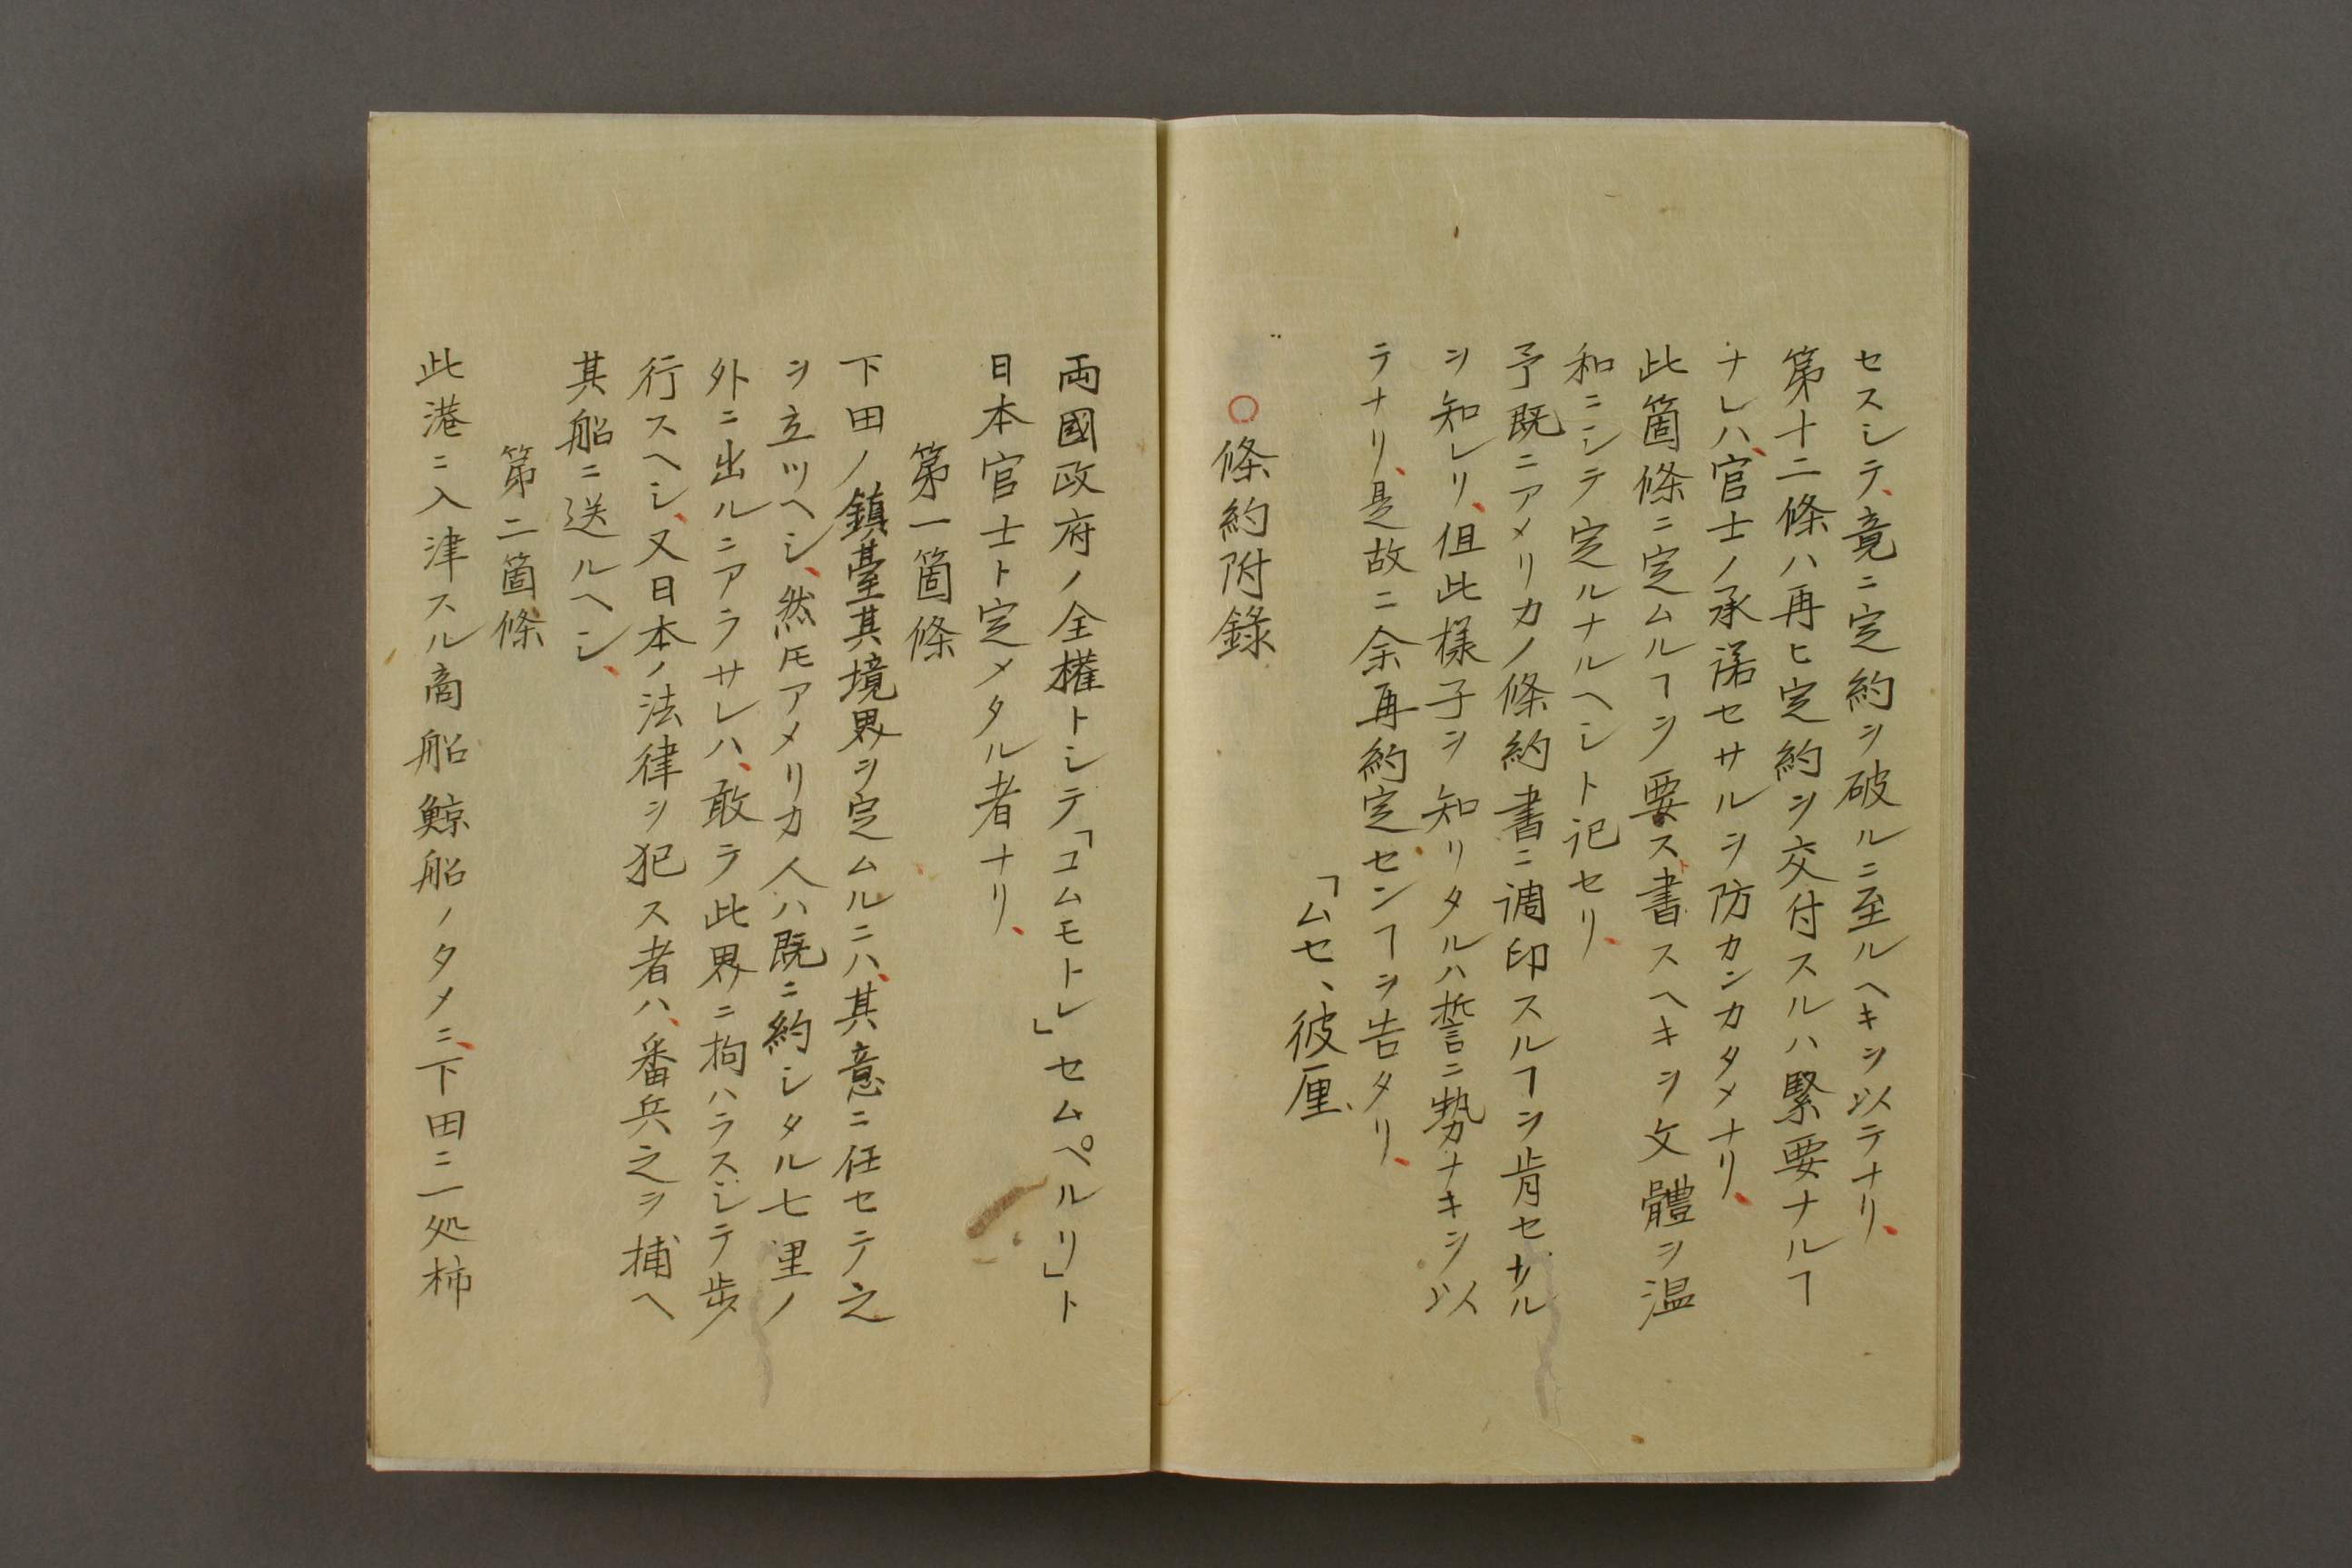 セスシテ、竟ニ定約ヲ破ルニ至ルヘキヲ以テナリ、
第十二條ハ再ヒ定約ヲ交付スルハ緊要ナルヿ
ナレハ、官士ノ承諾セサルヲ防カンカタメナリ、
此箇條ニ定ムルヿヲ要ス、書スヘキヲ文體ヲ温
和ニシテ定ルナルヘシト記セリ、
予既ニアメリカノ條約書ニ調印スルヿヲ肯セサル
ヲ知レリ、但此樣子ヲ知リタルハ誓ニ勢ナキヲ以
テナリ、是故ニ余再約定センヿヲ告タリ、
「ムセ、彼厘、
○條約附錄
両國政府ノ全權トシテ「コムモトレ」セムペルリ」ト
日本官士ト定メタル者ナリ、
第一箇條
下田ノ鎮臺其境界ヲ定ムルニハ、其意ニ任セテ之
ヲ立ツヘシ、然𪜈アメリカ人ハ既ニ約シタル七里ノ
外ニ出ルニアラサレハ、敢テ此界ニ拘ハラスシテ歩
行スヘシ、又日本ノ法律ヲ犯ス者ハ、番兵之ヲ捕ヘ
其船ニ送ルヘシ、
第二箇條
此港ニ入津スル商船鯨船ノタメニ、下田ニ二処柿